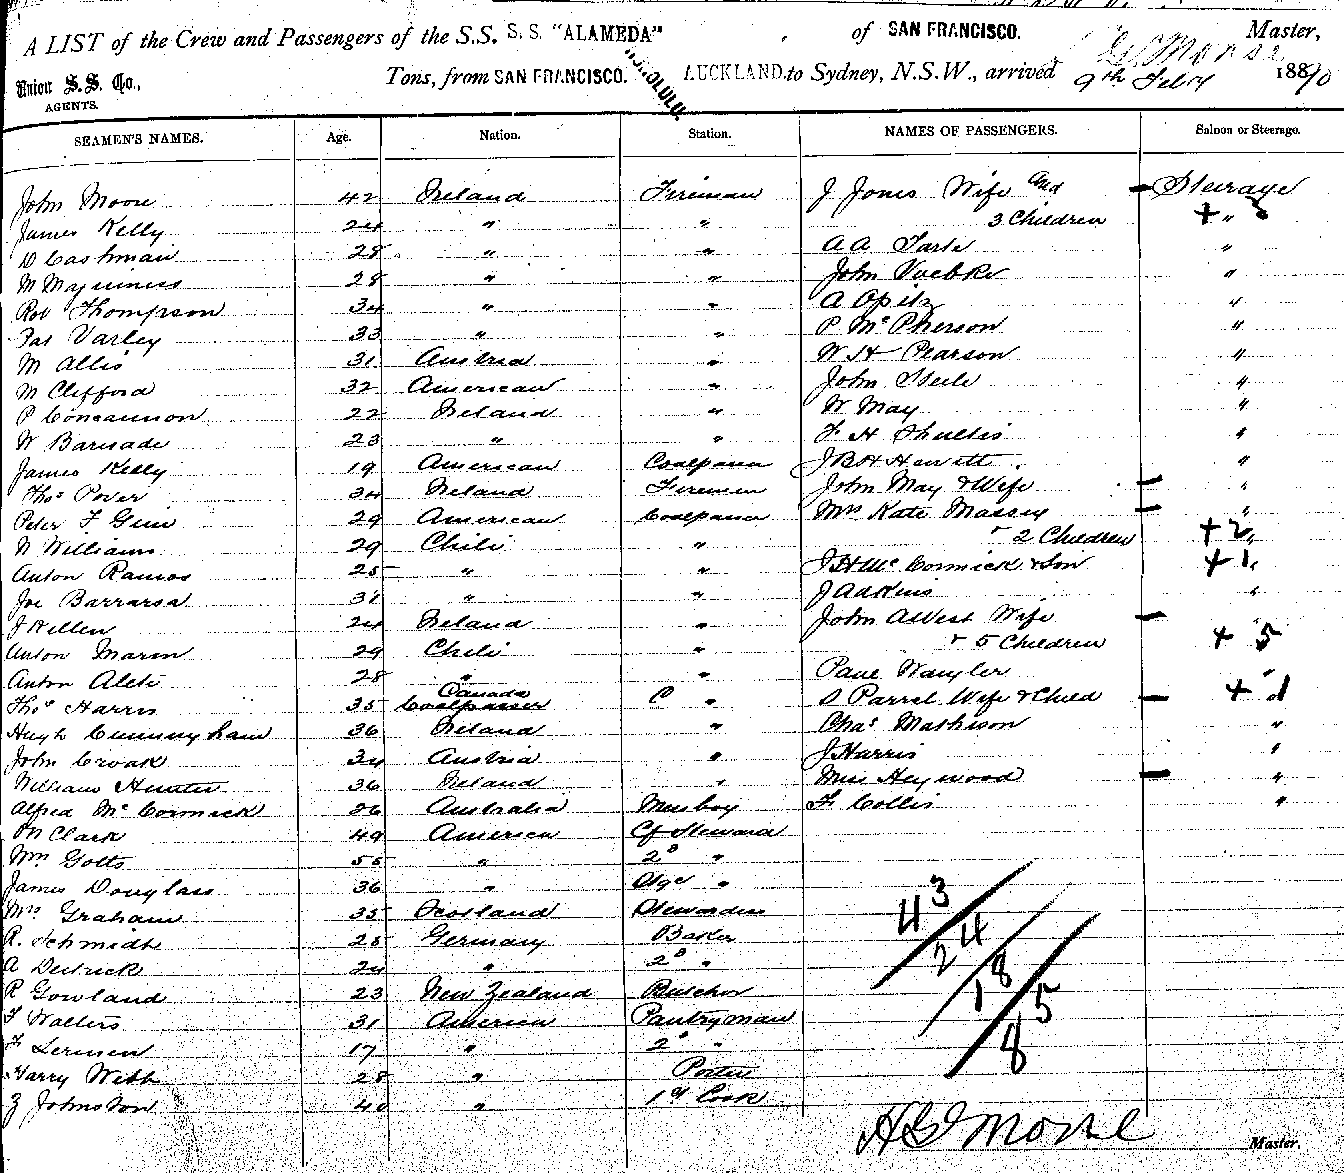 A LIST of the Crew and Passengers of the S.S. S. S. "ALAMEDA" of SAN FRANCISCO. Master,
Union S. S. Co., AGENTS. Tons, from SAN FRANCISCO. HONOLULU. AUCKLAND. to Sydney, N.S.W., arrived 9th Feby 1890
SEAMEN'S NAMES. Age. Nation. Station. NAMES OF PASSENGERS. Saloon or Steerage.
John Moore 42 Ireland Fireman J Jones Wife and Steerage
James Kelly 24 " " 3 Children + " 3
D Cashman 28 " " A A "
M Maguiness 28 " " John "
Rob Thompson 34 " " A Opitz "
Jas Varley 33 " " P McPherson "
M Allis 31 Austria " W H Pearson "
M Clifford 32 American " John Steele "
P Concannon 22 Ireland " W May "
W 23 " " F H "
James Kelly 19 American Coalpasser J B H Hewett "
Thos Power 34 Ireland Firemen John May & Wife "
Peter F 29 American Coalpasser Mrs Kate Massey "
W Williams 29 Chili " + 2 Children + 2 "
Anton Ramos 25 " " J H McCormick & Son + 1 "
Joe 31 " " J Adkins "
J Killen 24 Ireland " John A West Wife
Anton Marin 29 Chili " + 5 Children + 5
Anton 28 " " "
Thos Harris 35 Canada Coalpasser C " Parrel Wife & Child + 1
Hugh Cunnungham 36 Ireland " Chas Mathison "
John Croak 34 Austria " J Harris "
William Hunter 36 Ireland " Miss Heywood "
Alfred McCormick 26 Australia Messboy F Collis "
M Clark 49 American Cf Steward
Wm Gotts 55 " 2d "
James Douglass 36 " "
Mrs Graham 35 Scotland Stewardess
R. Schmidt 25 Germany Baker
A Deitrick 24 " 2d "
R Gowland 23 New Zealand Butcher
F Walters 31 American Pantryman
F 17 " 2d "
Harry Webb 28 " Porter
Z Johnston 40 " 1st Cook
43
24
18
85
H G Morse Master.